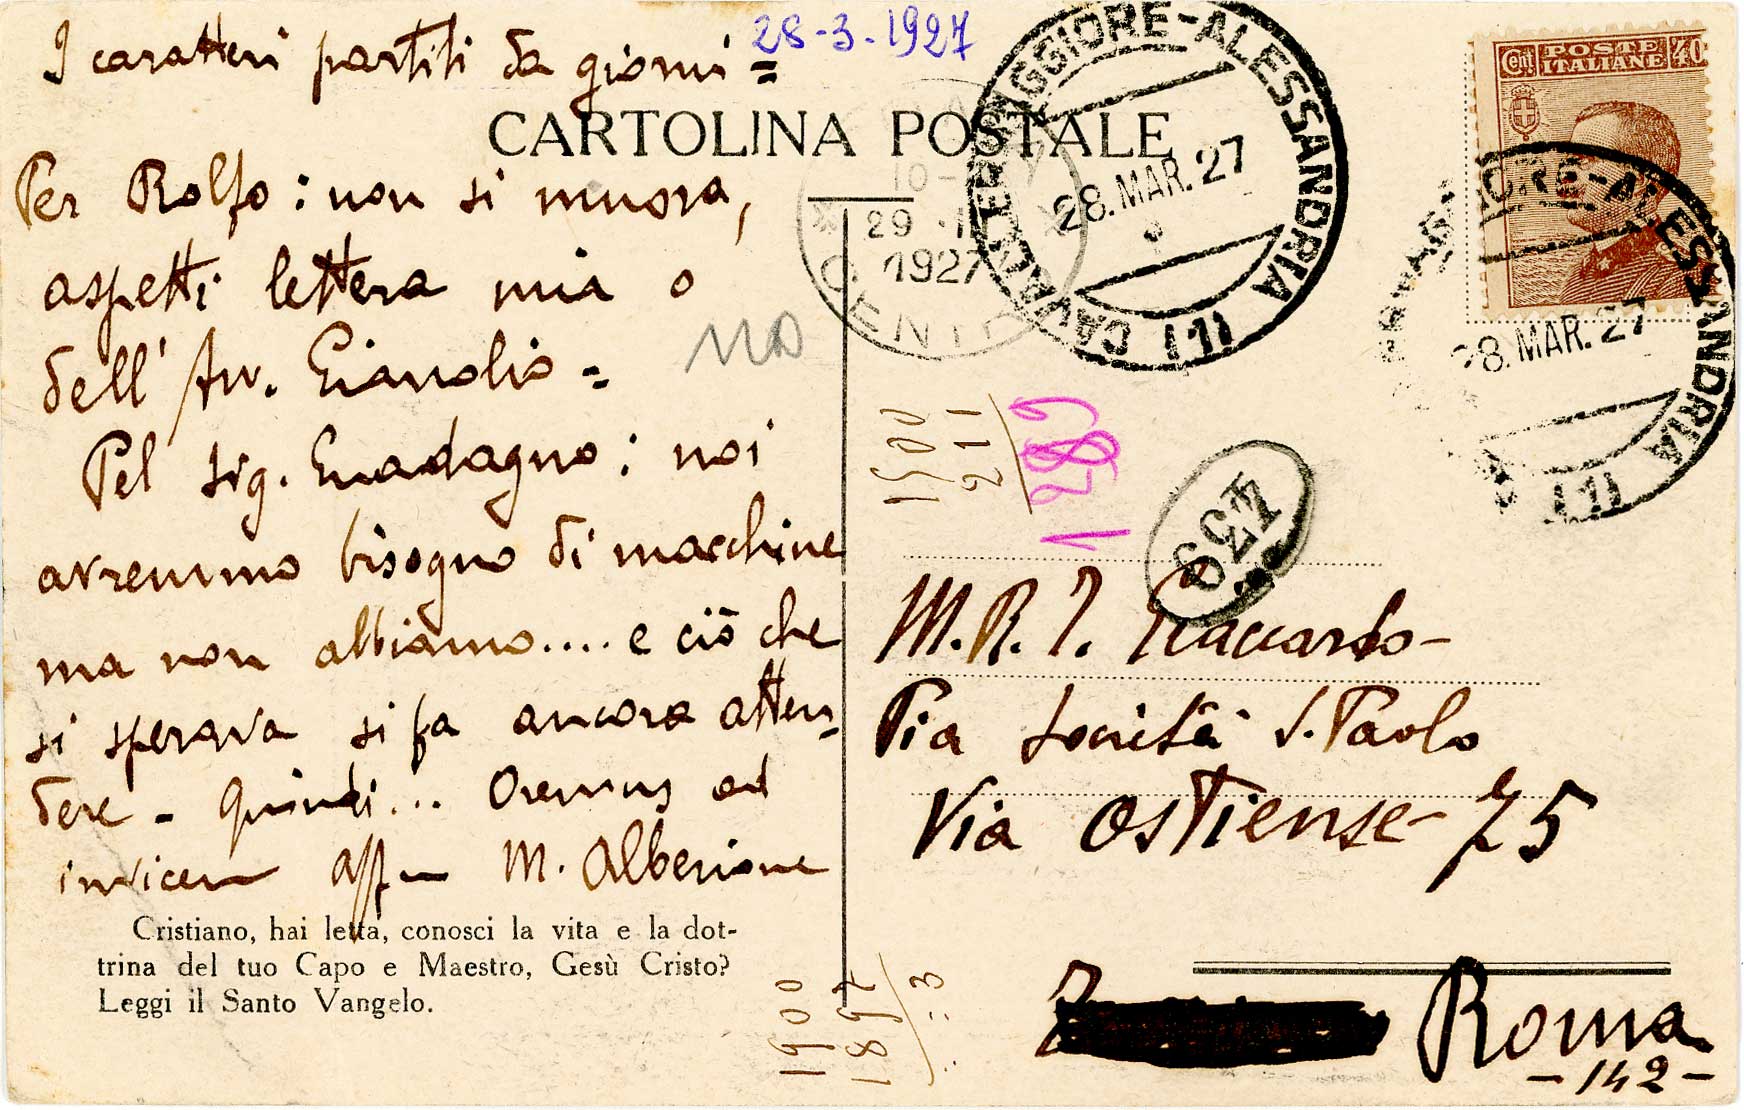 28-3-1927
I caratteri partiti da giorni =
CARTOLINA POSTALE
Per Rolfo: non si muova,
aspetti lettera mia o
dell' Avv. Gianolio =
Pel sig. Guadagno: noi
avremmo bisogno di macchine
ma non abbiamo.... e ciò che
si sperava si fa ancora atten-
dere - Quindi... Oremus ad
invicem aff M. Alberione
Cristiano, hai letta, conosci la vita e la dot-
trina del tuo Capo e Maestro, Gesù Cristo?
Leggi il Santo Vangelo.
CAVALLERMAGGIORE-ALESSANDRIA (11)
28.MAR.27
29
1927
Cent POSTE ITALIANE 40
28.MAR.27
ALESSANDRIA (11)
no
1500
211
1289
453
M. R. T. Giaccardo -
Pia Società S. Paolo
Via Ostiense - 75
Roma
- 142 -
1900
1897
= 3